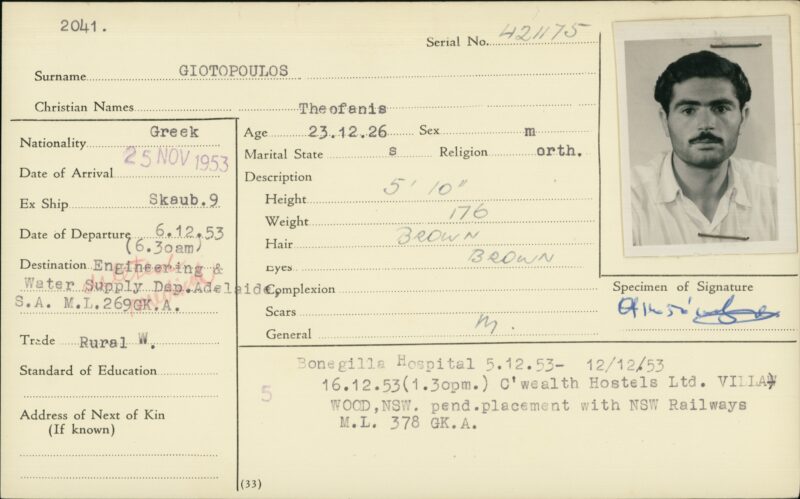 2041.
Serial No. 421175
Surname GIOTOPOULOS
Christian Names Theofanis
Nationality Greek
Date of Arrival 25 NOV 1953
Ex Ship Skaub.9
Date of Departure 6.12.53
(6.30am)
Destination Engineering &
Water Supply Dep.Adelaide,
S.A. M.L.269GK.A.
Trade Rural W.
Standard of Education
Address of Next of Kin
(If known)
Age 23.12.26 Sex m
Marital State s Religion orth.
Description
Height 5' 10"
Weight 176
Hair BROWN
Eyes BROWN
Complexion
Scars
General M.
Specimen of Signature
Bonegilla Hospital 5.12.53- 12/12/53
5 16.12.53(1.30pm.) C'wealth Hostels Ltd. VILLA
WOOD,NSW. pend.placement with NSW Railways
M.L. 378 GK.A.
(33)